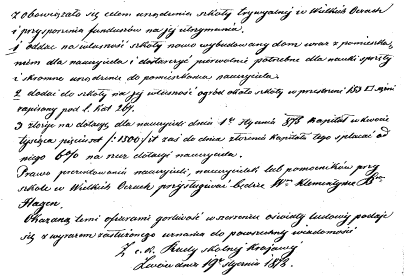 zobowiązała się celem urządzenia szkoły trywialnej w Wielkich Oczach
i przysporzenia funduszów na jej utrzymanie,
1 oddać na własność szkoły nowo wybudowany dom wraz z pomieszka-
niem dla nauczyciela i dostarczyć pierwotnie potrzebne dla nauki sprzęty
i skromne urządzenie do pomieszkania nauczyciela.
2 dodać do szkoły na jej własność ogród około szkoły w przestrzeni 153 □ sążni
zapisany pod l. kat 269.
3 złożyć na dotację dla nauczyciela dnia 1go Stycznia 1878 Kapitał w kwocie
tysiąca pięciuset /: 1500 / zł zaś do dnia złożenia kapitału tego spłacać od
niego 6% na rzecz dotacji nauczyciela.
Prawo prezentowania nauczycieli, nauczycielek lub pomocników przy
szkole w Wielkich Oczach przysługiwać będzie Wej Klementynie Bon
Hagen.
Okazaną temi ofiarami gorliwość w szerzeniu oświaty ludowej podaje
się z wyrazem zasłużonego uznania do powszechnej wiadomości
Z c. k. Rady szkolnej Krajowej
Lwów dnia 19go Stycznia 1878.